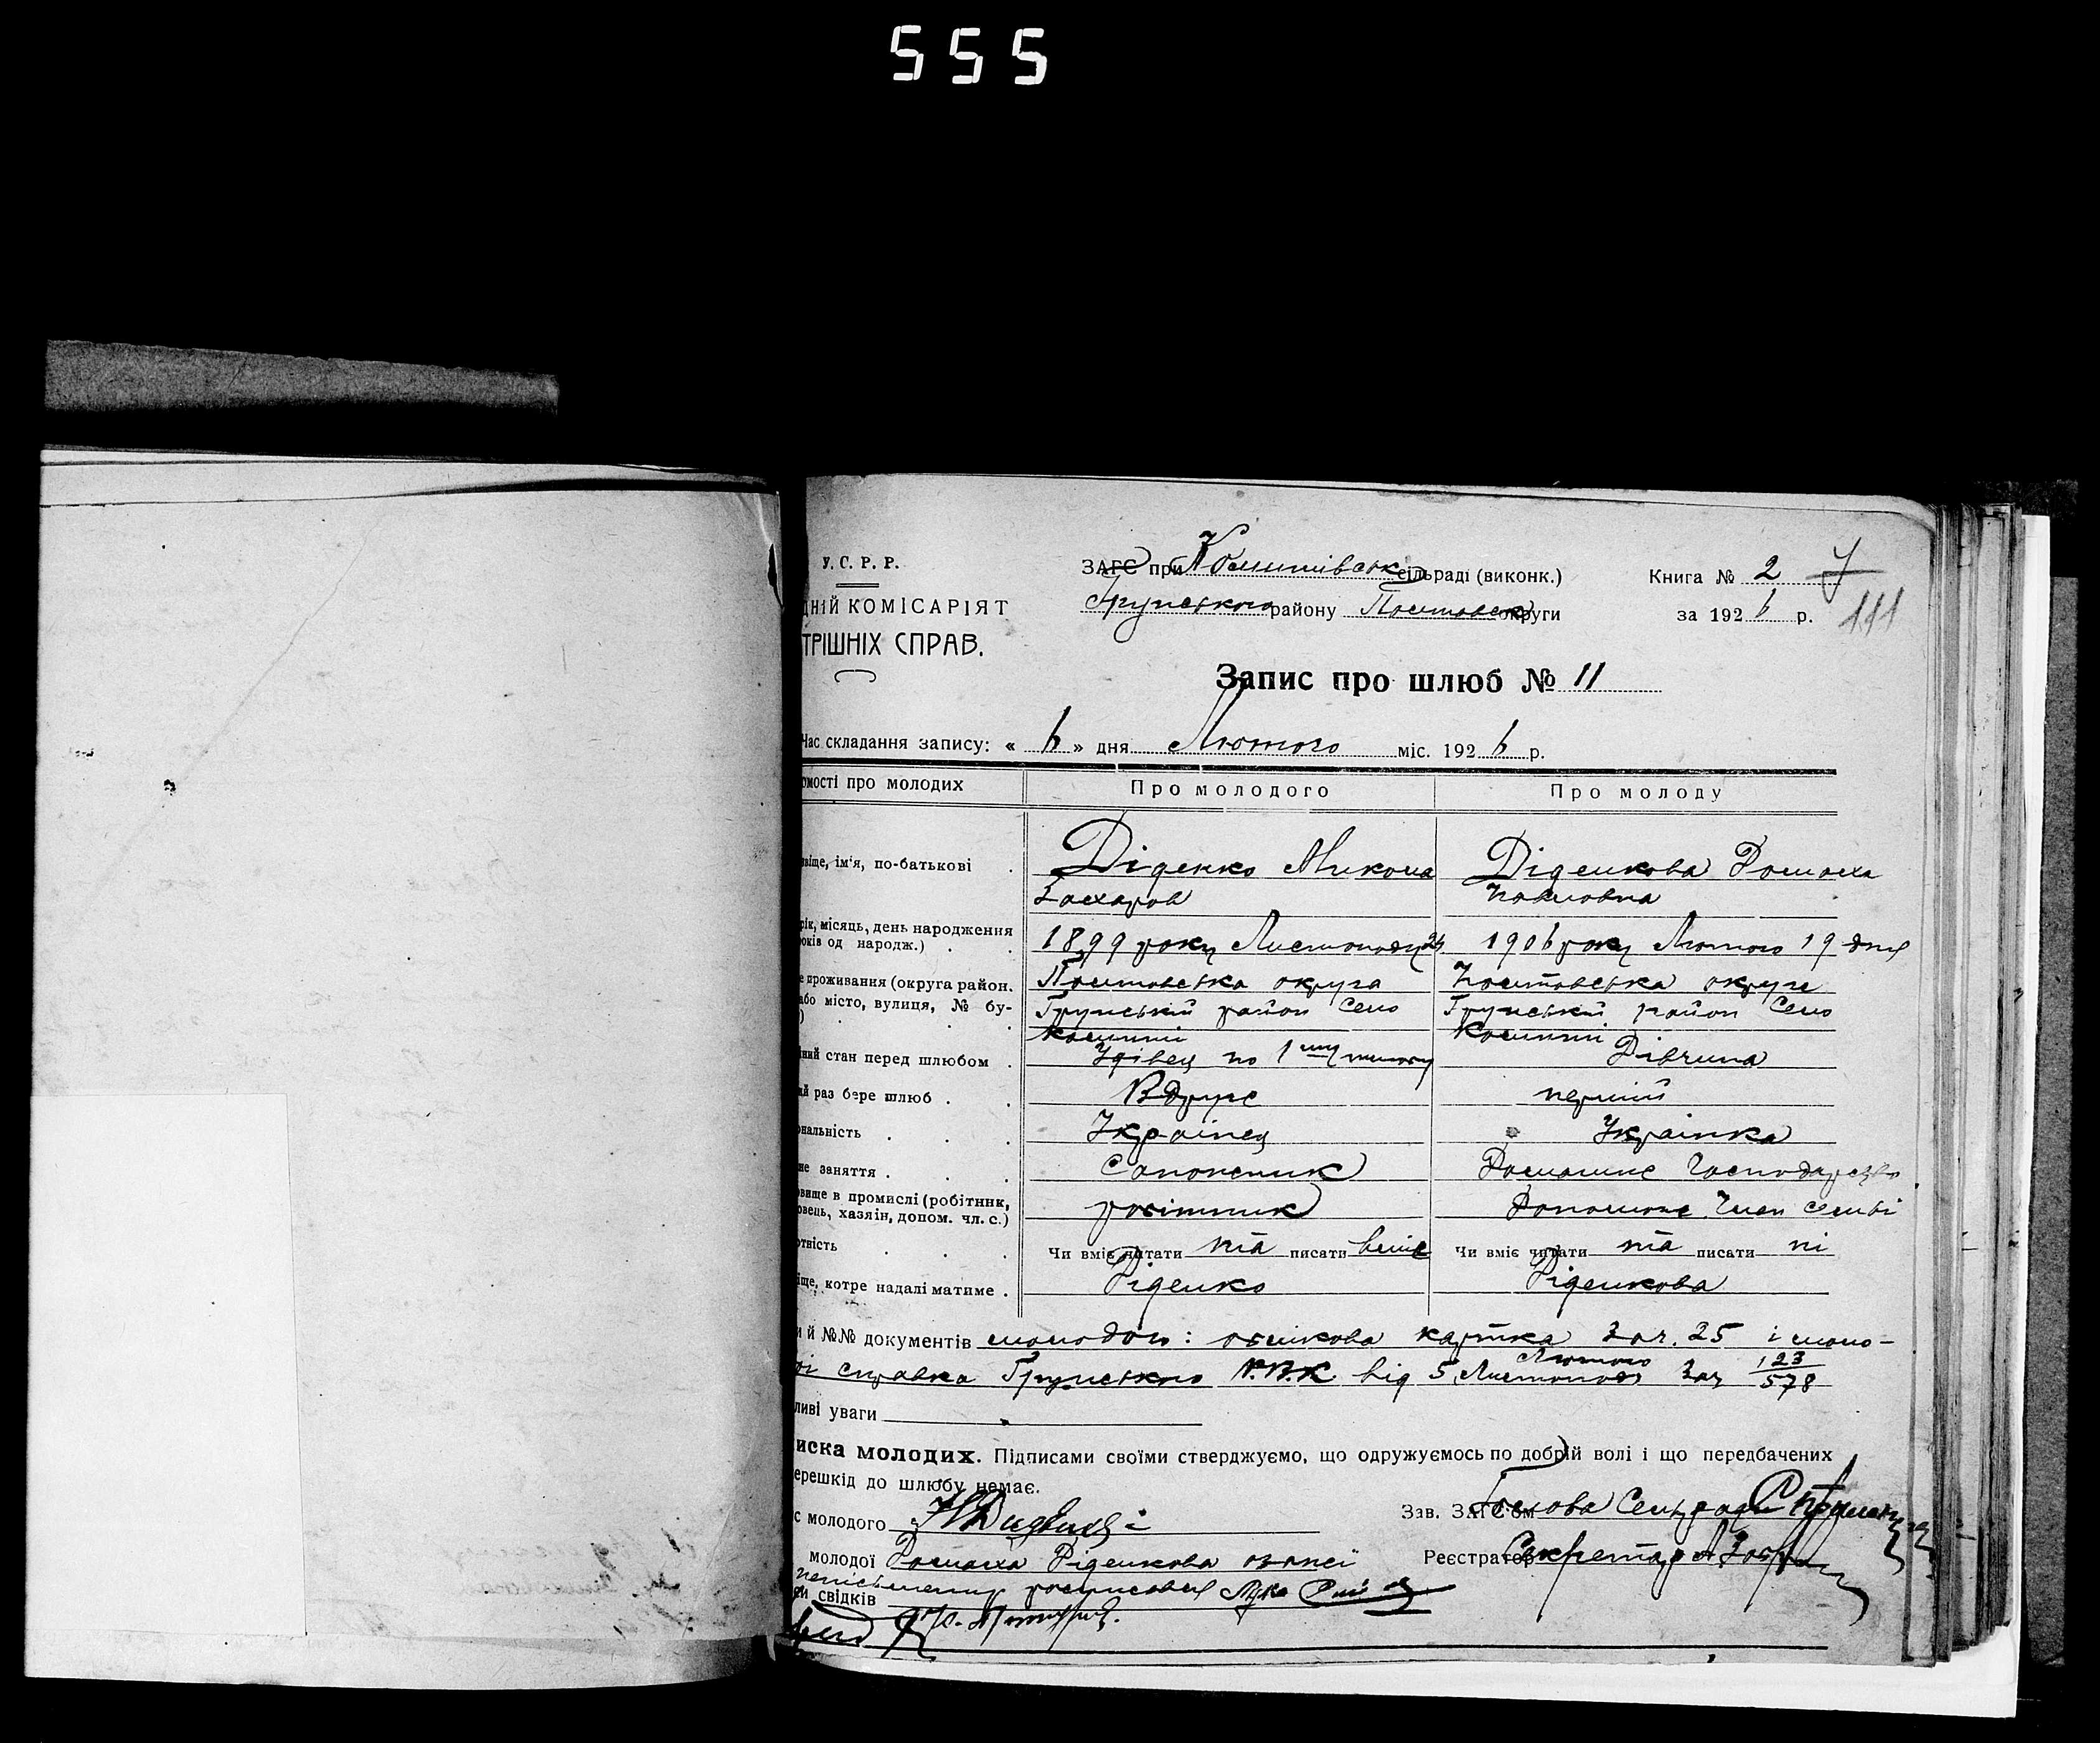 555
У. С. Р. Р.
ДНІЙ КОМІСАРІЯТ
ТРІШНІХ СПРАВ.
ЗАГС при сільраді (виконк.)
Грунського району Полтавськ округи
Книга № 2 7
за 1926 р. 111
Запис про шлюб № 11
Час складання запису: « 6 » дня Лютого міс. 1926 р.
омості про молодих
Про молодого
Про молоду
звіще, ім'я, по-батькові
Діденко Микола
Захаров
Діденкова Домаха
Павловна
рік, місяць, день народження
років од народж.)
1899 року Листопаду 24
1906 року Лютого 19 дня
е проживання (округа район.
або місто, вулиця, № бу-
)
Полтавська округа
Грунський район Село
Полтавська округа
Грунський район Село
ний стан перед шлюбом
Удівец по 1му шлюбу
Дівчина
ий раз бере шлюб
Вдруге
перший
ональність
Українец
Українка
не заняття
Сапожник
Домашнє Господарство
овище в промислі (робітник,
овець, хазяїн, допом. чл. с.)
робітник
Допомож. Член семьі
отність
Чи вміє читати та писати вміє
Чи вміє читати та писати ні
іще, котре надалі матиме
Діденко
Діденкова
и й №№ документів молодого: облікова картка за ч. 25 і моло-
ої справка Грунського Р.В.К від 5 Листопада Лютого за ч 123/578
ливі уваги
иска молодих. Підписами своїми стверджуємо, що одружуємось по добрій волі і що передбачених
ерешкід до шлюбу немає.
с молодого
Зав. ЗАГС'ом Голова Сельради
молодої Домаха Діденкова
Реєстратор Секретар
неписьменну росписався
си свідків